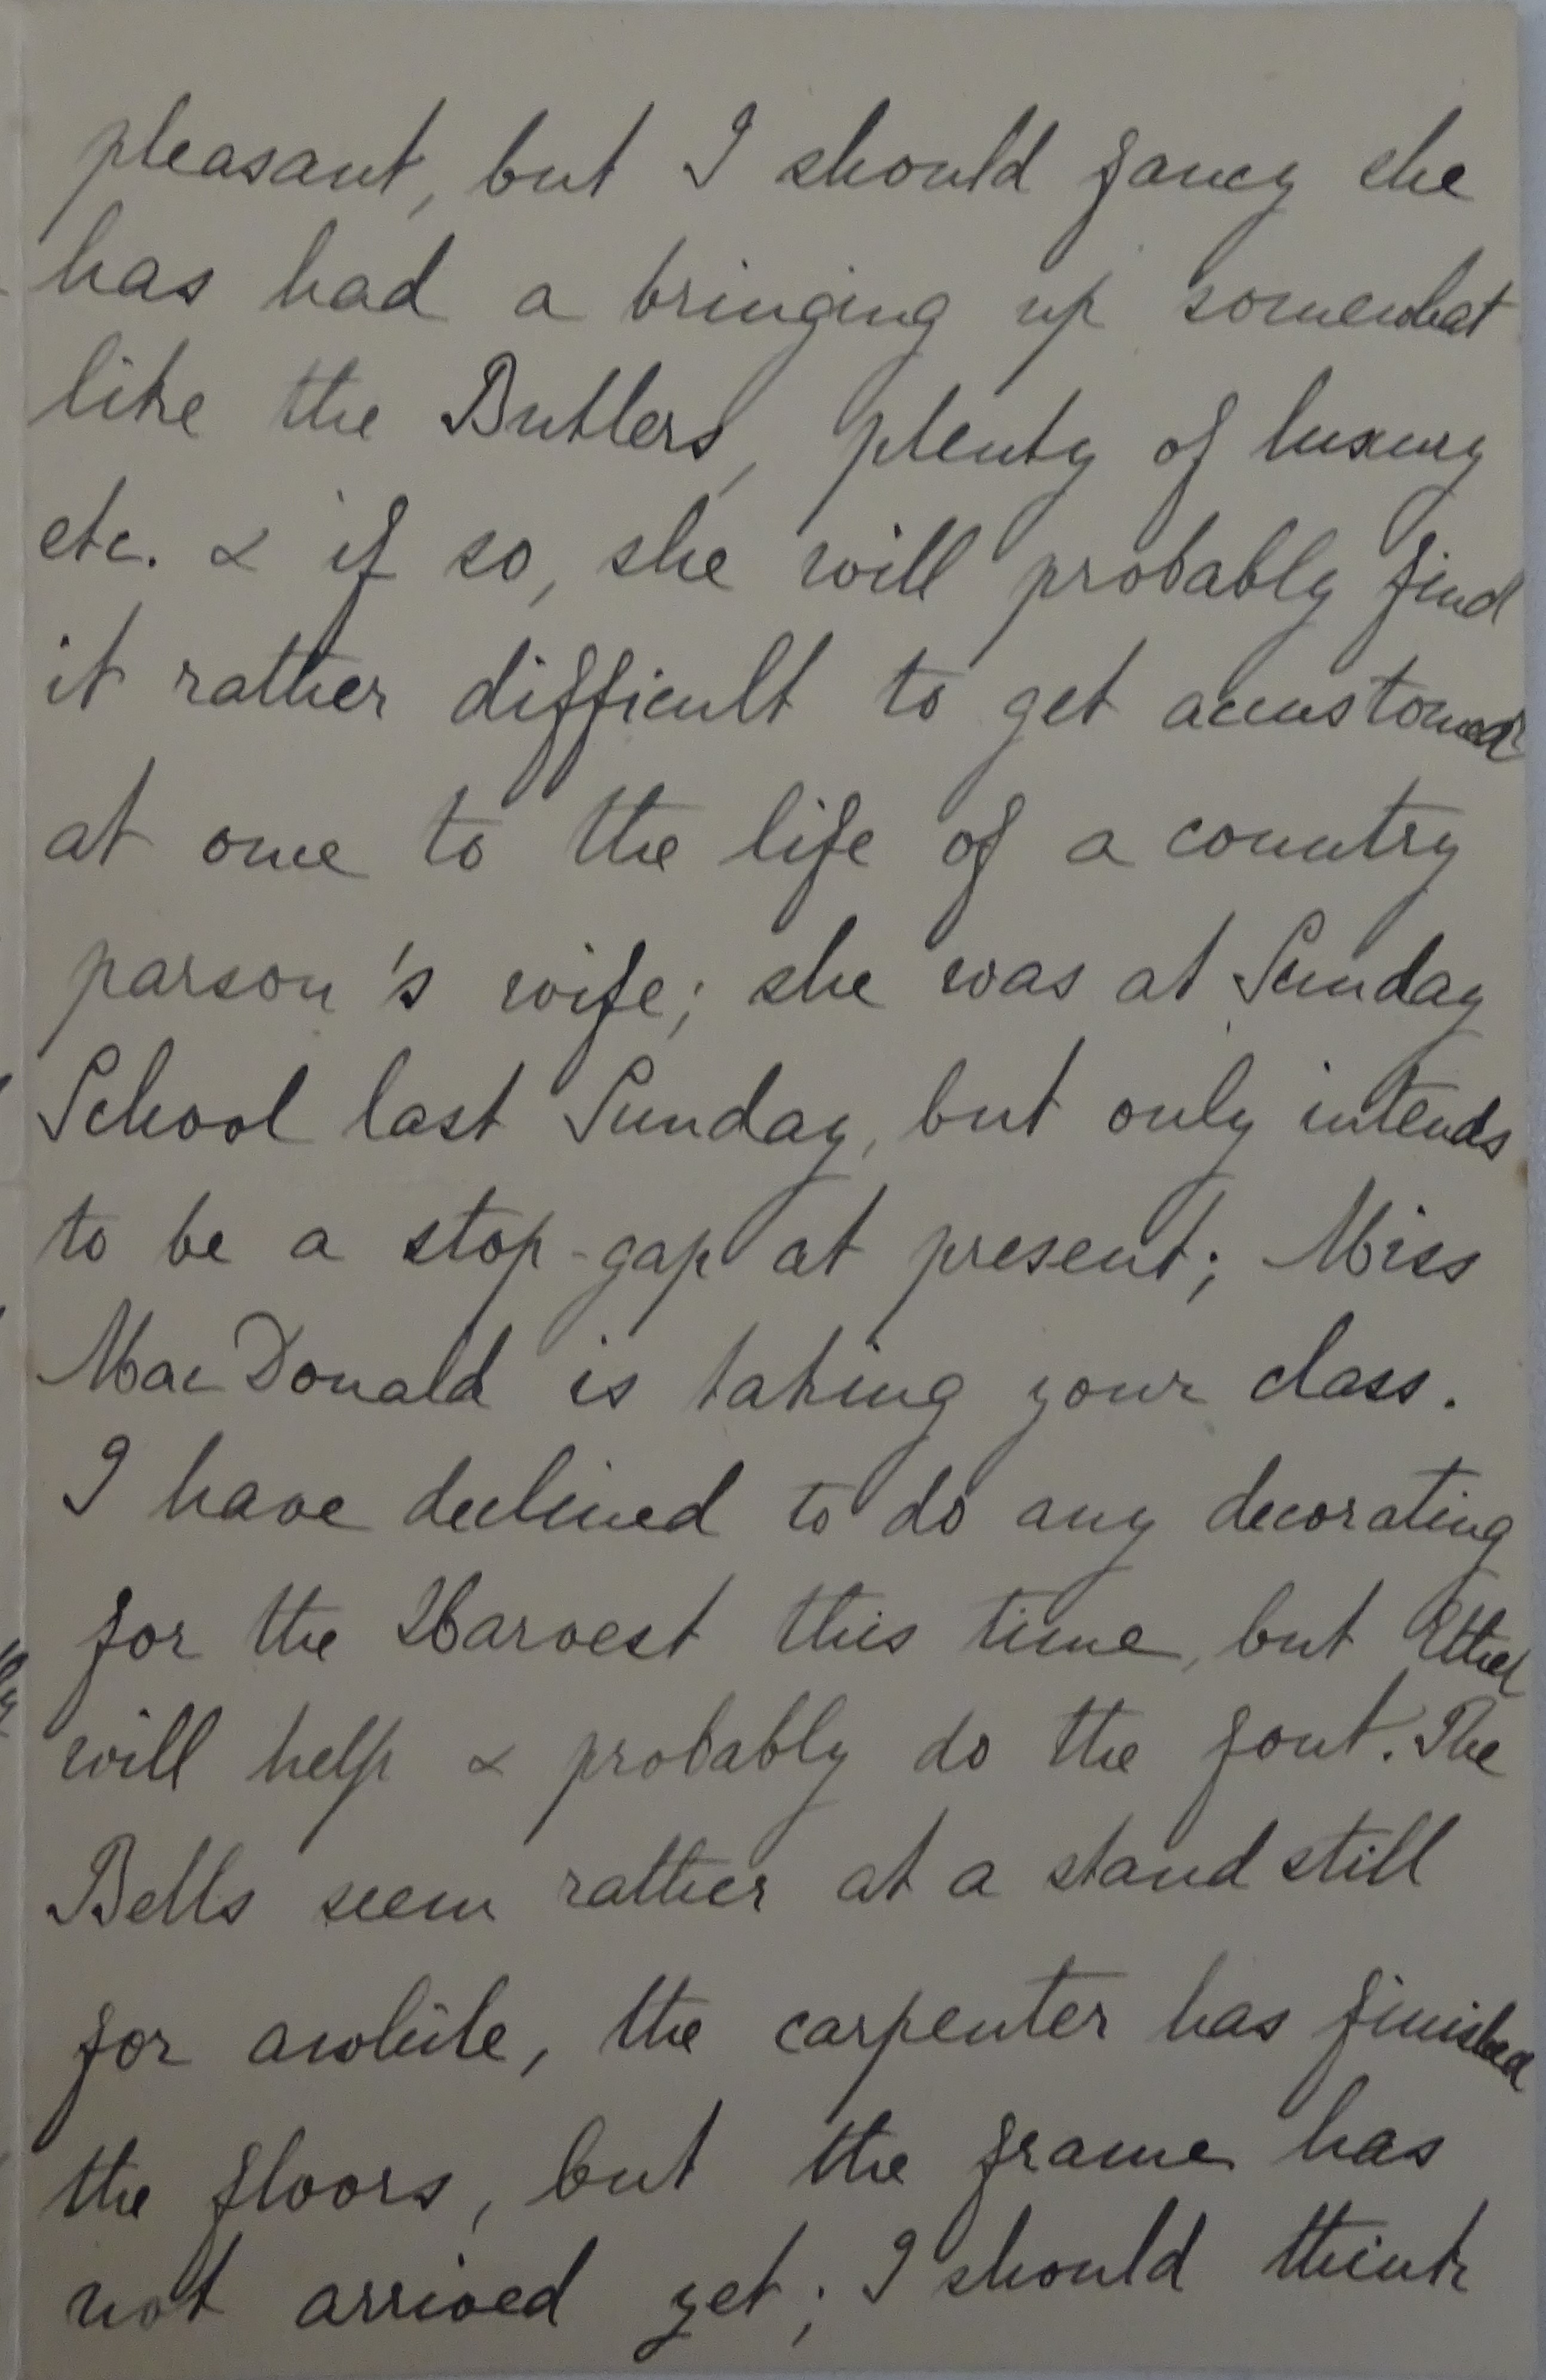 pleasant, but I should fancy she
has had a bringing up somewhat
like the Butlers, plenty of luxury
etc. & if so, she will probably find
it rather difficult to get accustomed
at once to the life of a country
parson's wife; she was at Sunday
School last Sunday, but only intends
to be a stop-gap at present; Miss
MacDonald is taking your class.
I have declined to do any decorating
for the Harvest this time, but Ethel
will help & probably do the font. The
Bells seem rather at a stand still
for awhile, the carpenter has finished
the floors, but the frame has
not arrived yet; I should think